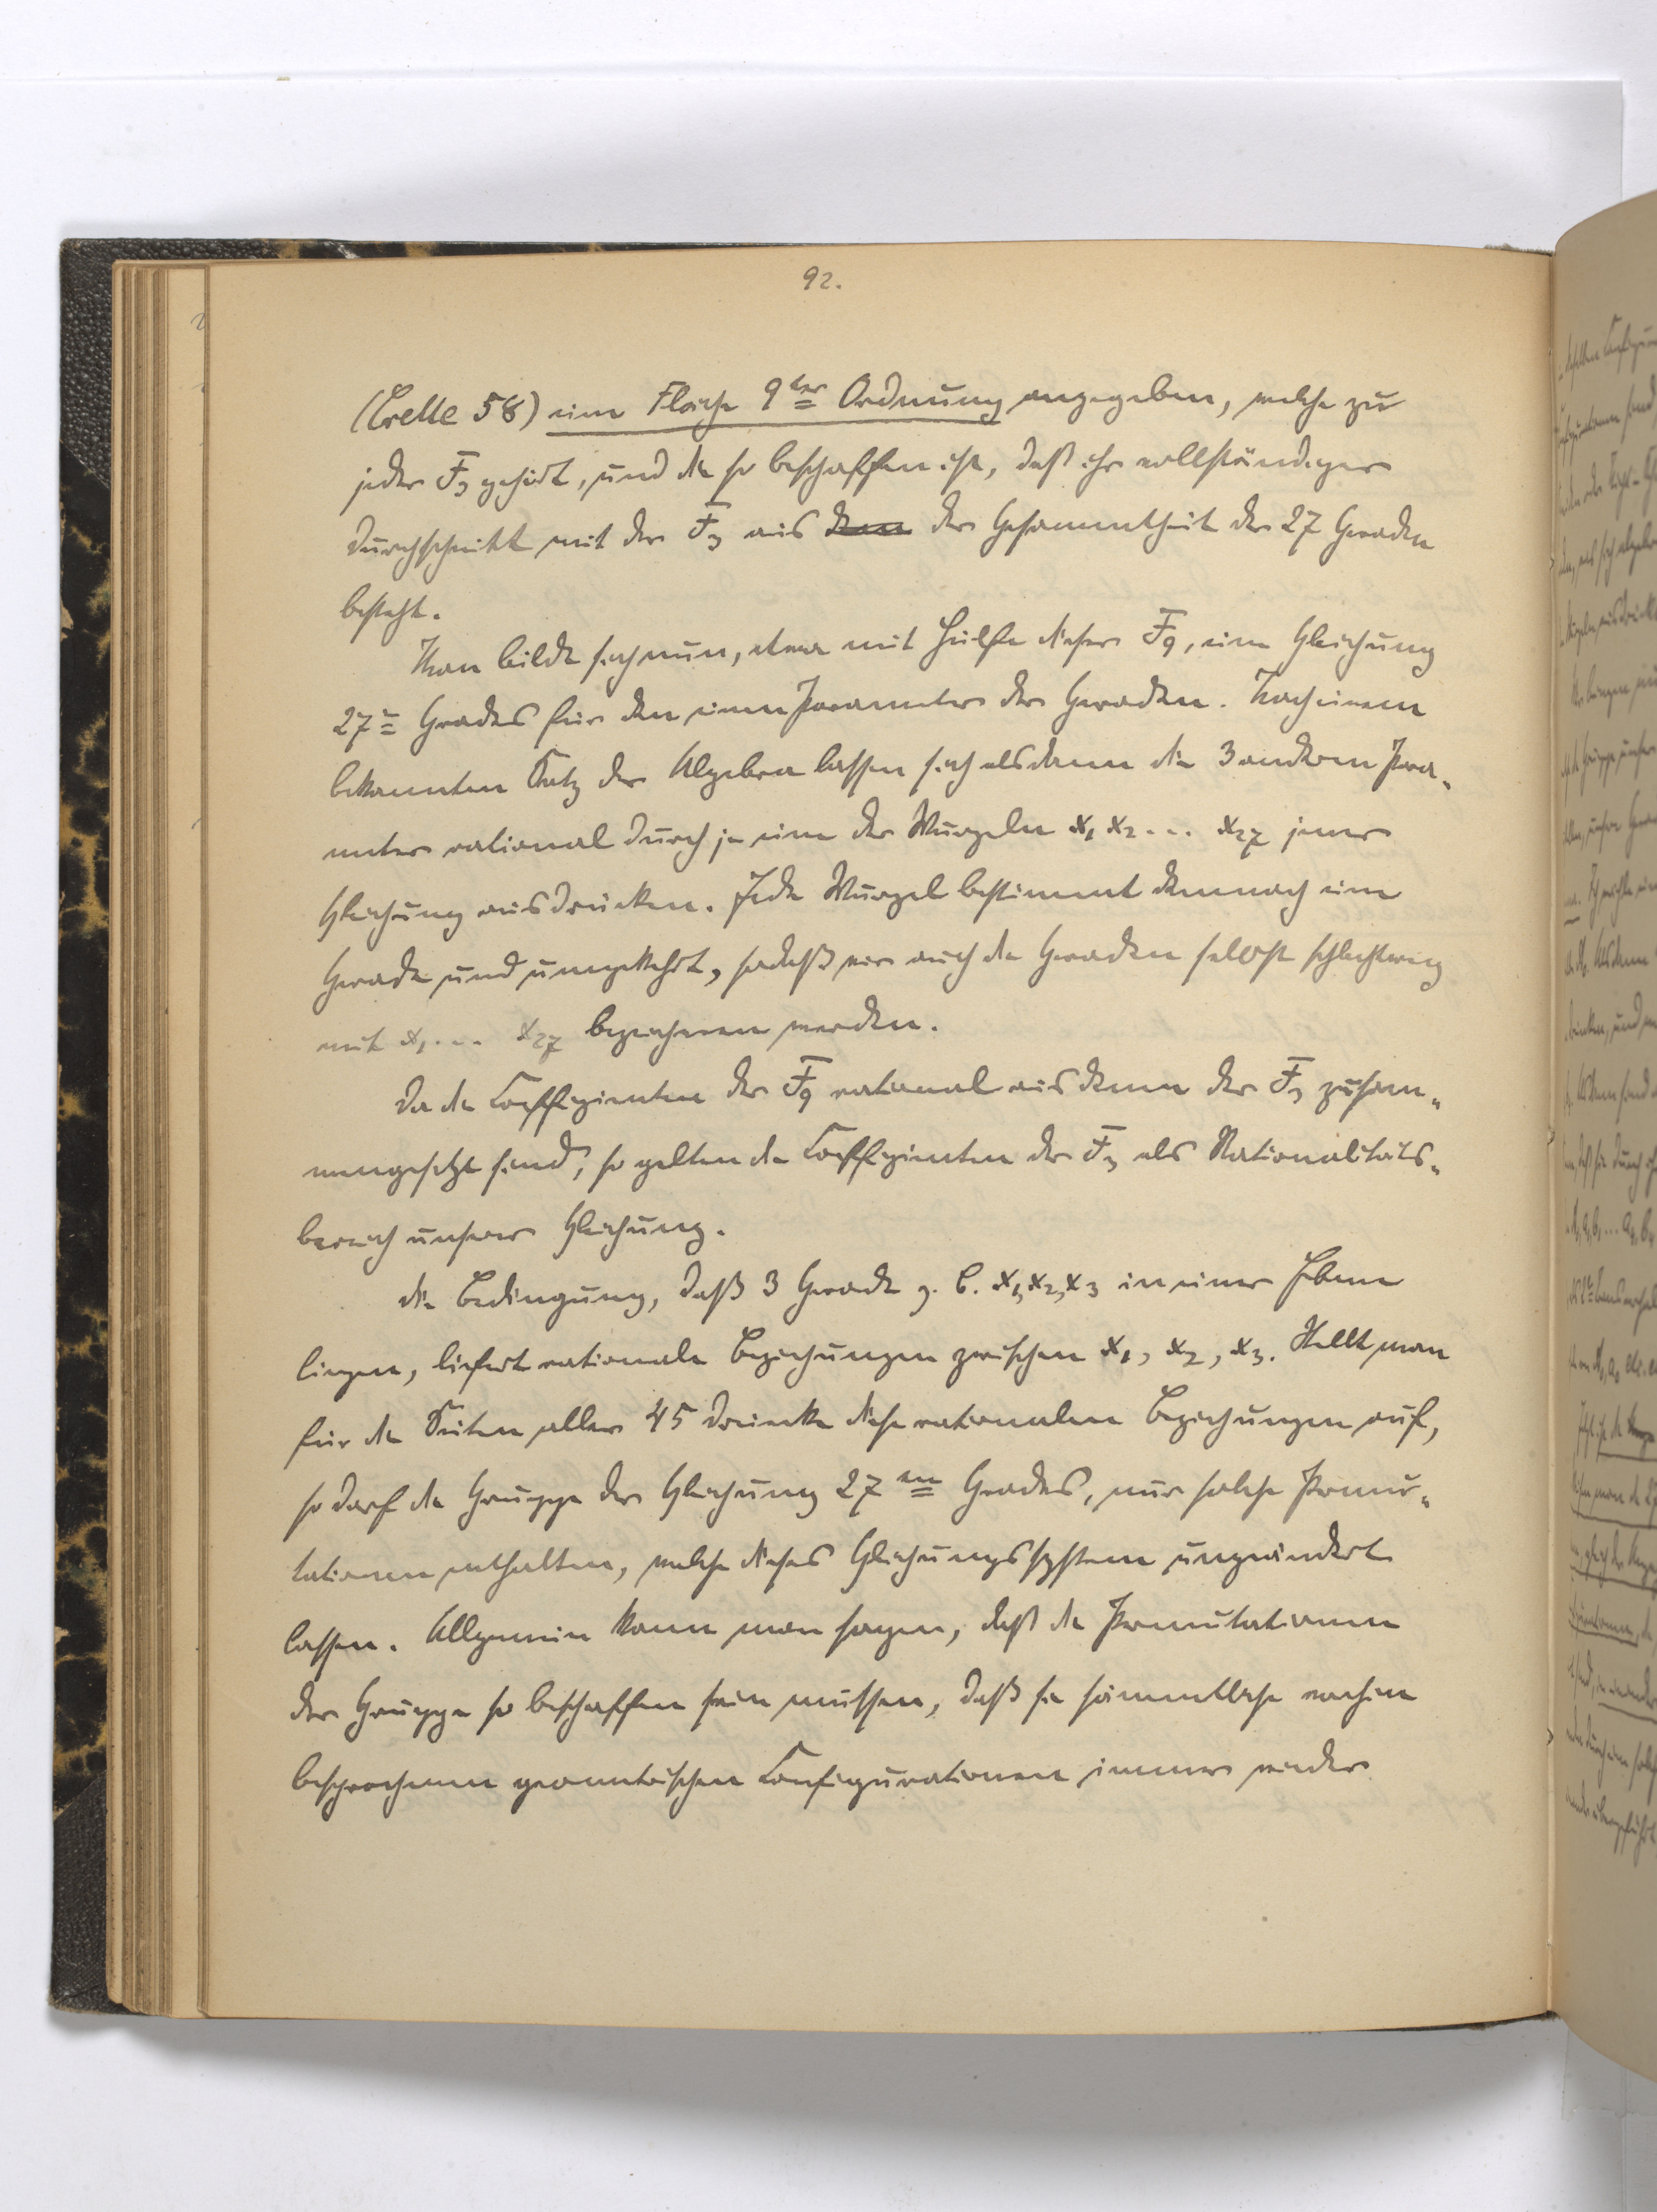 92.
(Crelle 58) eine Fläche 9ter Ordnung angegeben, welche zu
jeder F3 gehört, und die so beschaffen ist, daß ihr vollständiger
Durchschnitt mit der F3 aus den der Gesammtheit der 27 Geraden
besteht.
Man bilde sich nun, etwa mit Hülfe dieser F9, eine Gleichung
27n Grades für den einen Parameter der Geraden. Nach einem
bekannten Satz der Algebra lassen sich alsdann die 3 anderen Para-
meter rational durch je eine der Wurzeln x1 x2 ... x27 jener
Gleichung ausdrücken. Jede Wurzel bestimmt demnach eine
Gerade und umgekehrt, sodaß wir auch die Geraden selbst schlechtweg
mit x1 ... x27 bezeichnen werden.
Da die Coeffizienten der F9 rational aus denen der F3 zusam-
mengesetzt sind, so gelten die Coeffizienten der F3 als Rationalitäts-
bereich unserer Gleichung.
Die Bedingung, daß 3 Gerade z. B. x1, x2, x3 in einer Ebene
liegen, liefert rationale Beziehungen zwischen x1, x2, x3. Stellt man
für die Seiten aller 45 Dreiecke diese rationalen Beziehungen auf,
so darf die Gruppe der Gleichung 27ten Grades, nur solche Permu-
tationen enthalten, welche dieses Gleichungssystem ungeändert
lassen. Allgemein kann man sagen, daß die Permutationen
der Gruppe so beschaffen sein müssen, daß sie sämmtliche vorhin
besprochenen geometrischen Configurationen immer wieder